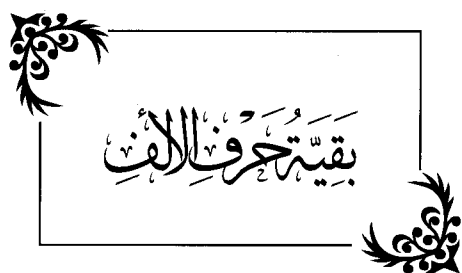 بَقِيَّةُ حَرْفِ الأَلِفِ